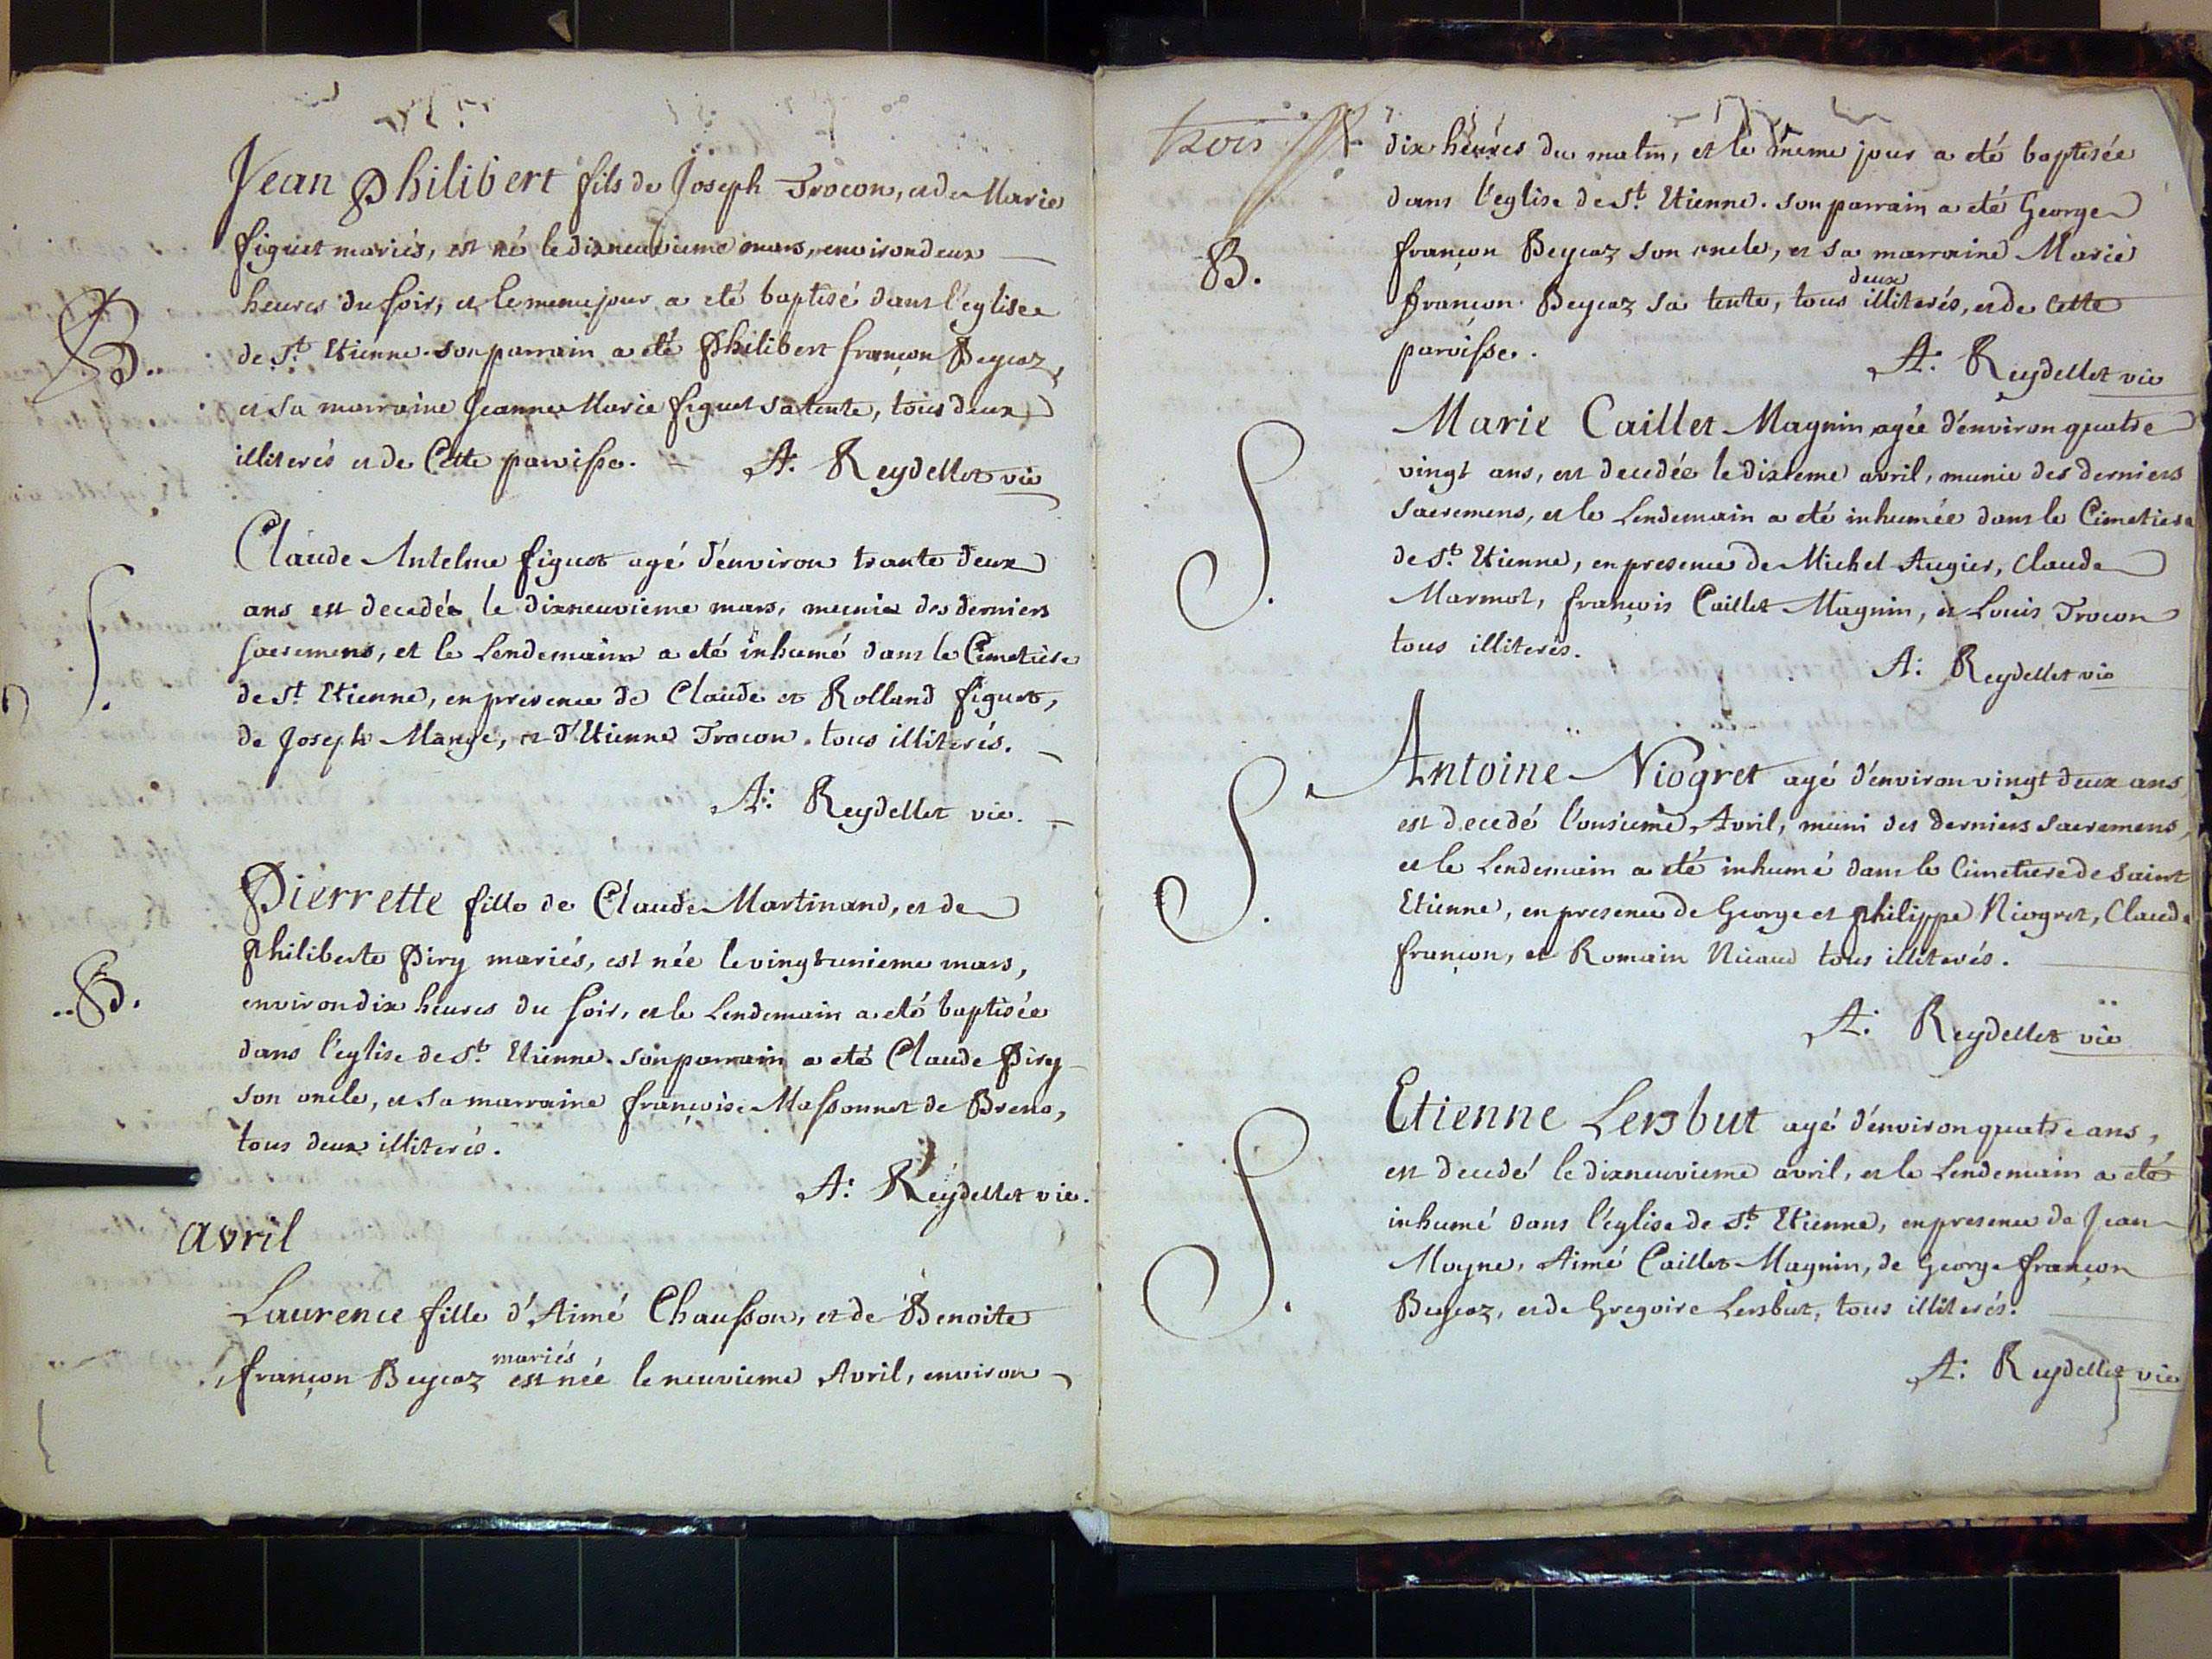 Jean Philibert fils de Joseph Trocon, et de Marie
figuet mariés, est né le dixneuvieme mars, environ deux
heures du soir, et le meme jour a eté baptisé dans l'eglise
B.
de St. Etienne. son parrain a eté Philibert françon Beycoz,
et sa marraine Jeanne Marie figuet sa tente, tous deux
illiterés et de Cette paroisse. A: Reydellet vic
Claude Antelme figuet agé d'environ trante deux
ans est decedée le dixneuvieme mars, munie des derniers
sacremens, et le Lendemain a eté inhumé dans le Cimetière
S.
de St. Etienne, en presence de Claude et Rolland figuet,
de Joseph Mange, et d'Etienne Trocon. tous illiterés.
A: Reydellet vic.
Pierrette fille de Claude Martinand, et de
philiberte Piry mariés, est née le vingtunieme mars,
B.
environ dix heures du soir, et le Lendemain a eté baptisée
dans l'eglise de St. Etienne. son parrain a eté Claude Piry
son oncle, et sa marraine françoise Massonnet de Breno,
tous deux illiterés.
A: Reydellet vic.
avril
Laurence fille d'Aimé Chausson, et de Benoite
françon Beycoz mariés est née le neuvieme Avril, environ
trois
dix heures du matin, et le meme jour a eté baptisée
dans l'eglise de St. Etienne. son parrain a eté George
B.
françon Beycoz son oncle, et sa marraine Marie
françon Beycoz sa tente, tous deux illiterés, et de Cette
paroisse.
A: Reydellet vic
Marie Caillet Magnin agée d'environ quatre
vingt ans, est decedée le dixieme avril, munie des derniers
sacremens, et le Lendemain a eté inhumée dans le Cimetiere
S.
de St. Etienne, en presence de Michel Augier, Claude
Marmot, françois Caillet Magnin, et Louis Trocon
tous illiterés.
A: Reydellet vic
Antoine Niogret agé d'environ vingt deux ans
est decedé l'onsieme Avril, muni des derniers sacremens,
S.
et le Lendemain a eté inhumé dans le Cimetiere de saint
Etienne, en presence de George et philippe Niogret, Claude
françon, et Romain Nicaud tous illiterés.
A: Reydellet vic
Etienne Lersbut agé d'environ quatre ans,
est decedé le dixneuvieme avril, et le Lendemain a eté
S.
inhumé dans l'église de St. Etienne, en presence de Jean
Moyne, Aimé Caillet Magnin, de George françon
Beycoz, et de Gregoire Lersbut, tous illiterés.
A: Reydellet vic